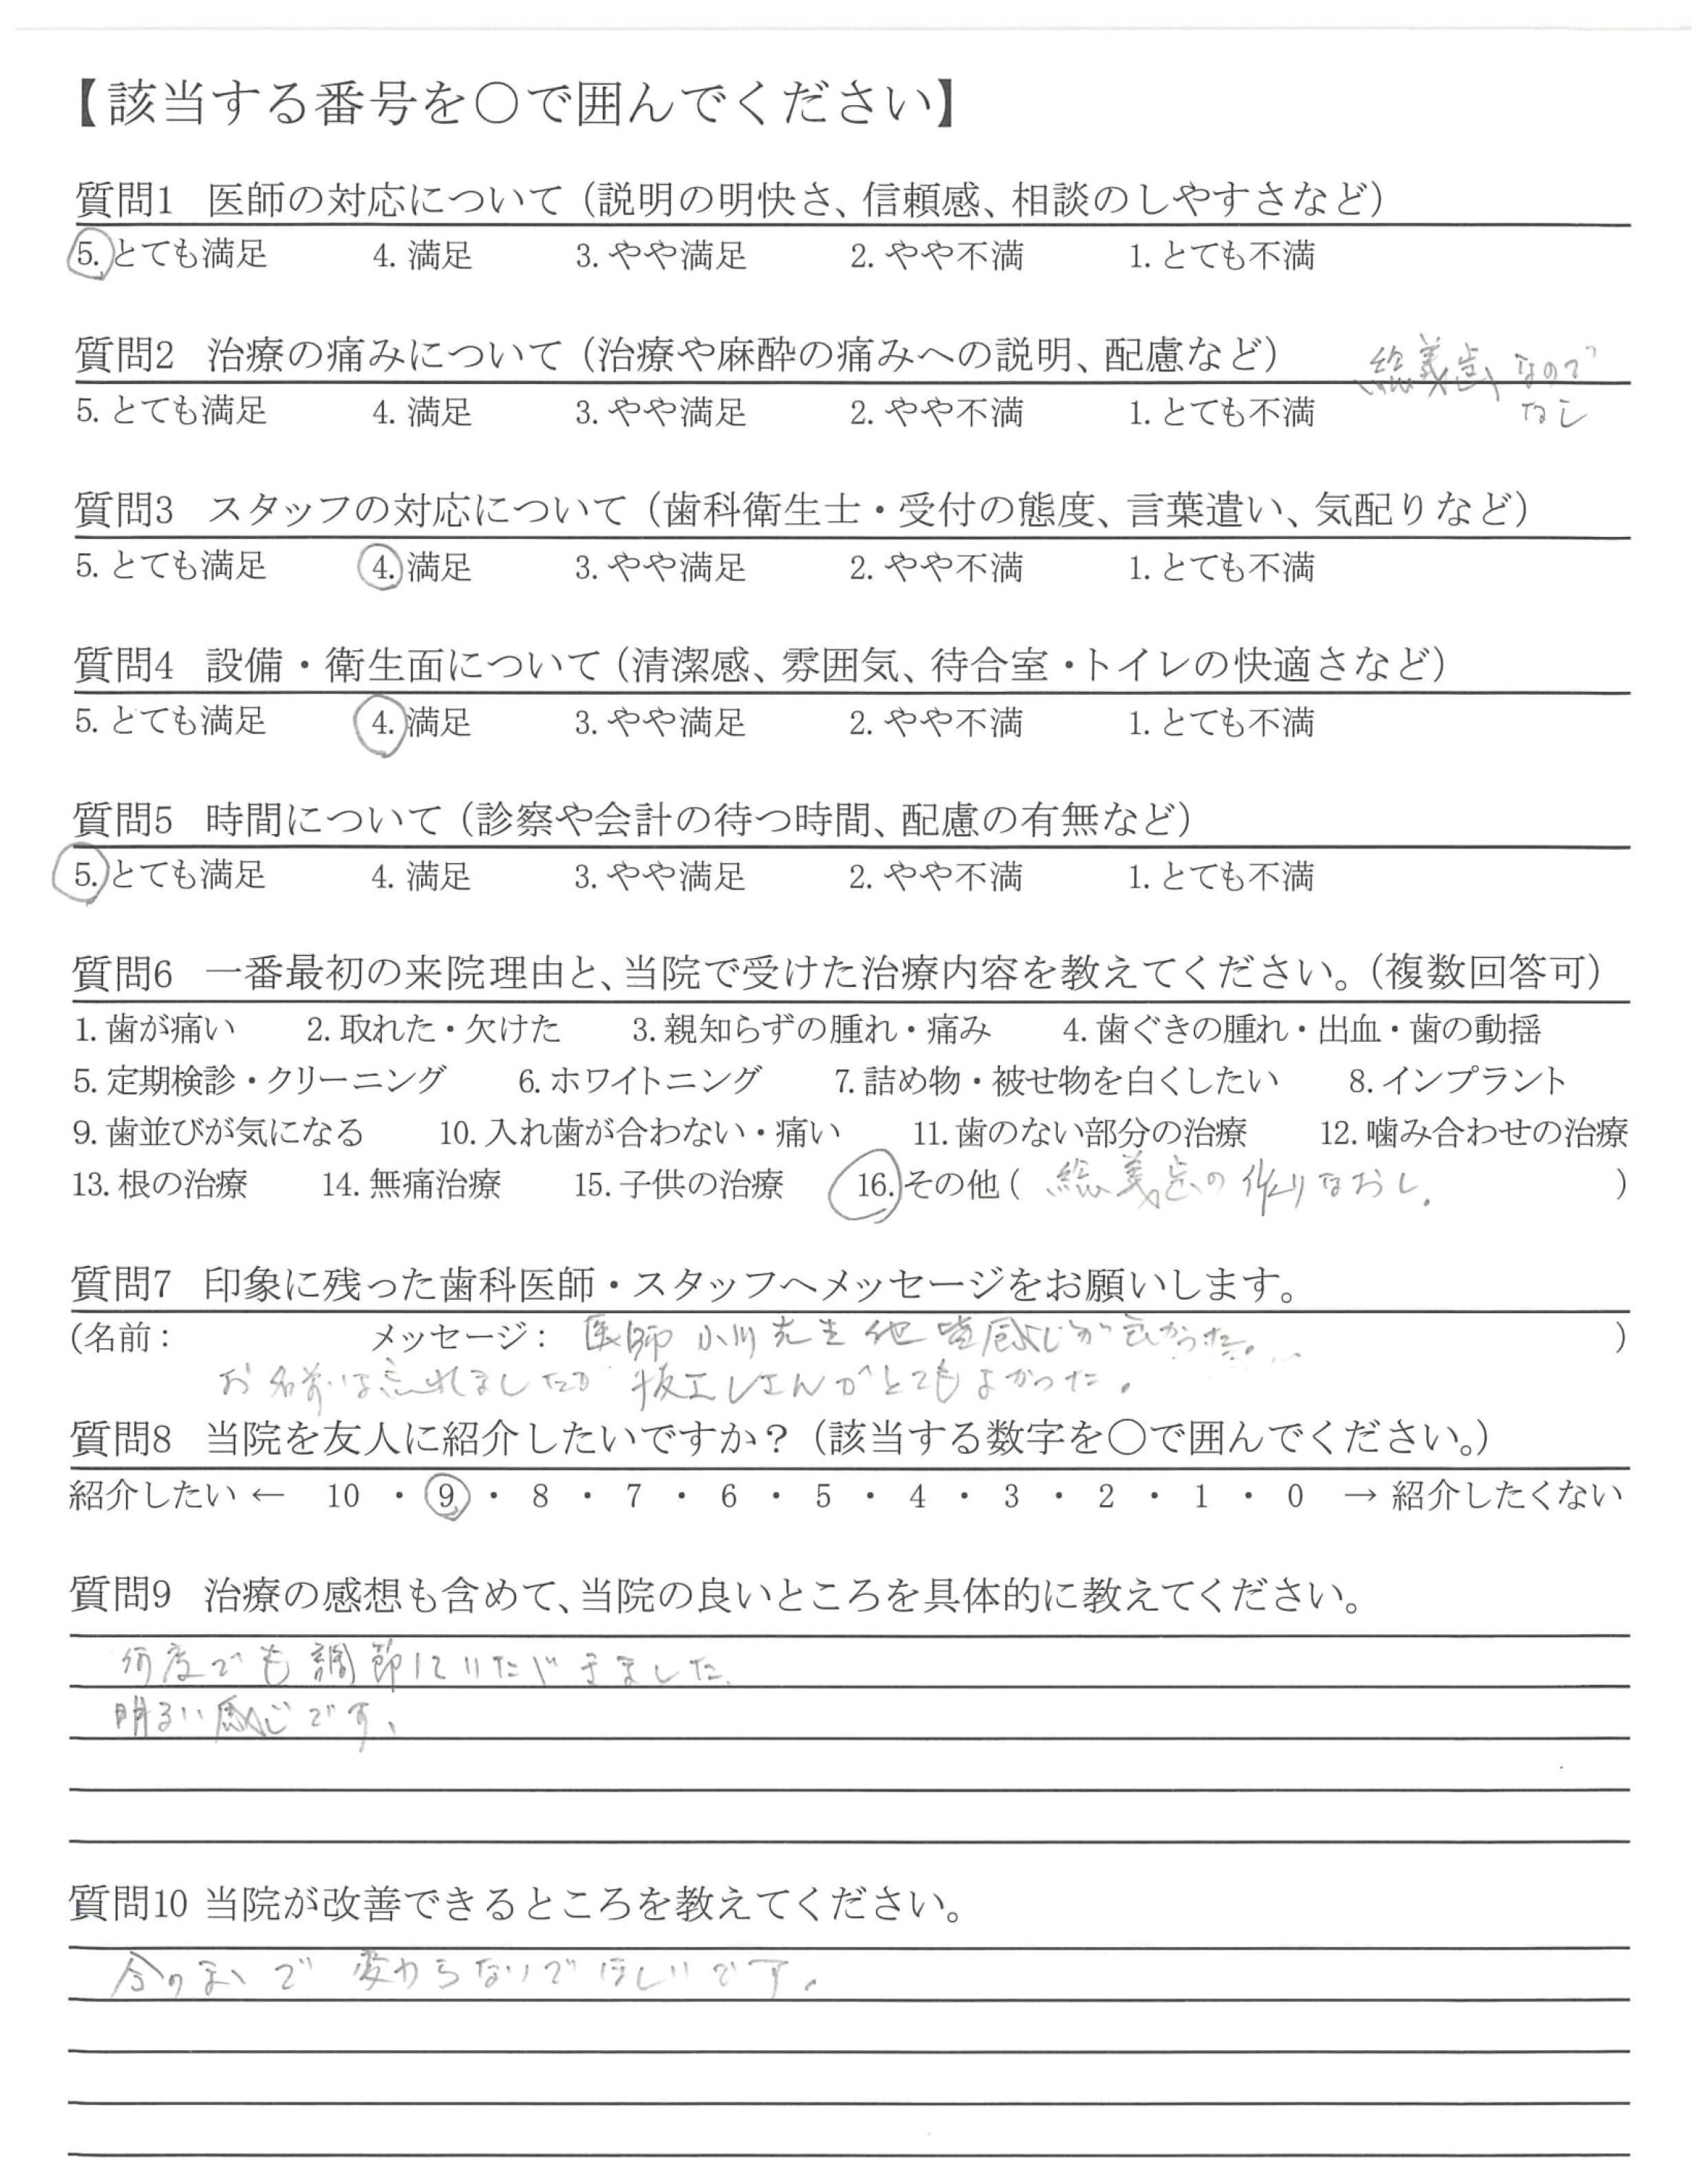 【該当する番号を○で囲んでください】
質問1 医師の対応について（説明の明快さ、信頼感、相談のしやすさなど）
5. とても満足 4. 満足 3. やや満足 2. やや不満 1. とても不満
質問2 治療の痛みについて（治療や麻酔の痛みへの説明、配慮など） 総義歯なので
5. とても満足 4. 満足 3. やや満足 2. やや不満 1. とても不満 なし
質問3 スタッフの対応について（歯科衛生士・受付の態度、言葉遣い、気配りなど）
5. とても満足 4. 満足 3. やや満足 2. やや不満 1. とても不満
質問4 設備・衛生面について（清潔感、雰囲気、待合室・トイレの快適さなど）
5. とても満足 4. 満足 3. やや満足 2. やや不満 1. とても不満
質問5 時間について（診察や会計の待つ時間、配慮の有無など）
5. とても満足 4. 満足 3. やや満足 2. やや不満 1. とても不満
質問6 一番最初の来院理由と、当院で受けた治療内容を教えてください。（複数回答可）
1. 歯が痛い 2. 取れた・欠けた 3. 親知らずの腫れ・痛み 4. 歯ぐきの腫れ・出血・歯の動揺
5. 定期検診・クリーニング 6. ホワイトニング 7. 詰め物・被せ物を白くしたい 8. インプラント
9. 歯並びが気になる 10. 入れ歯が合わない・痛い 11. 歯のない部分の治療 12. 噛み合わせの治療
13. 根の治療 14. 無痛治療 15. 子供の治療 16. その他( 総義歯の作りなおし。 )
質問7 印象に残った歯科医師・スタッフへメッセージをお願いします。
(名前： メッセージ： 医師 小川先生 他 感じが良かった。 )
お名前は忘れましたが 技工しさんがとてもよかった。
質問8 当院を友人に紹介したいですか？（該当する数字を○で囲んでください。）
紹介したい ← 10 ・ 9 ・ 8 ・ 7 ・ 6 ・ 5 ・ 4 ・ 3 ・ 2 ・ 1 ・ 0 → 紹介したくない
質問9 治療の感想も含めて、当院の良いところを具体的に教えてください。
何度でも調節していただきました。
明るい感じです、
質問10 当院が改善できるところを教えてください。
今のまゝで変わらないでほしいです。